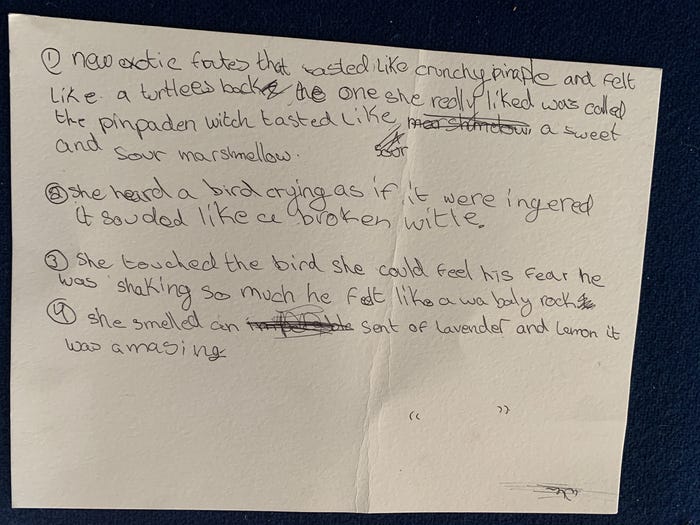 ① new exotic frutes that tasted like crunchy pinaple and felt
like a turtlees back the one she really liked was called
the pinpaden witch tasted like a sweet
and sour marsmellow.
② she heard a bird crying as if it were ingered
it souded like a broken witle.
③ she touched the bird she could feel his fear he
was shaking so much he felt like a wa baly rock
④ she smelled an sent of lavender and lemon it
was amasing
“ ”